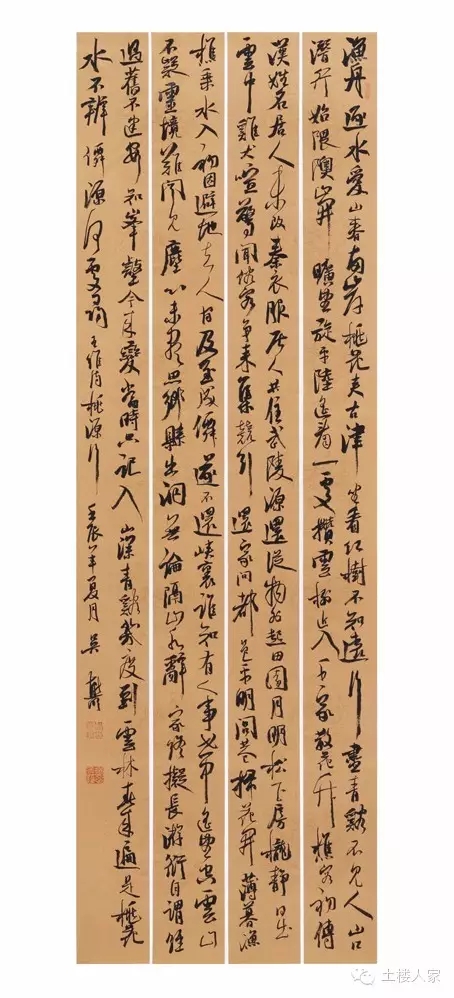 漁舟逐水愛山春兩岸桃花夾古津坐看紅樹不知遠行盡青谿不見人山口
潛行始隈隩山開曠望旋平陸遙看一處攢雲樹近入千家散花竹樵客初傳
漢姓名居人未改秦衣服居人共住武陵源還從物外起田園月明松下房櫳靜日出
雲中雞犬喧驚聞俗客爭來集競引還家問都邑平明閭巷掃花開薄暮漁
樵乘水入初因避地去人間及至成僊遂不還峽裏誰知有人事世中遙望空雲山
不疑靈境難聞見塵心未盡思鄉縣出洞無論隔山水辭家終擬長游衍自謂經
過舊不迷安知峯壑今來變當時只記入山深青谿幾度到雲林春來遍是桃花
水不辨僊源何處尋王維詩桃源行壬辰年夏月吳
土楼人家